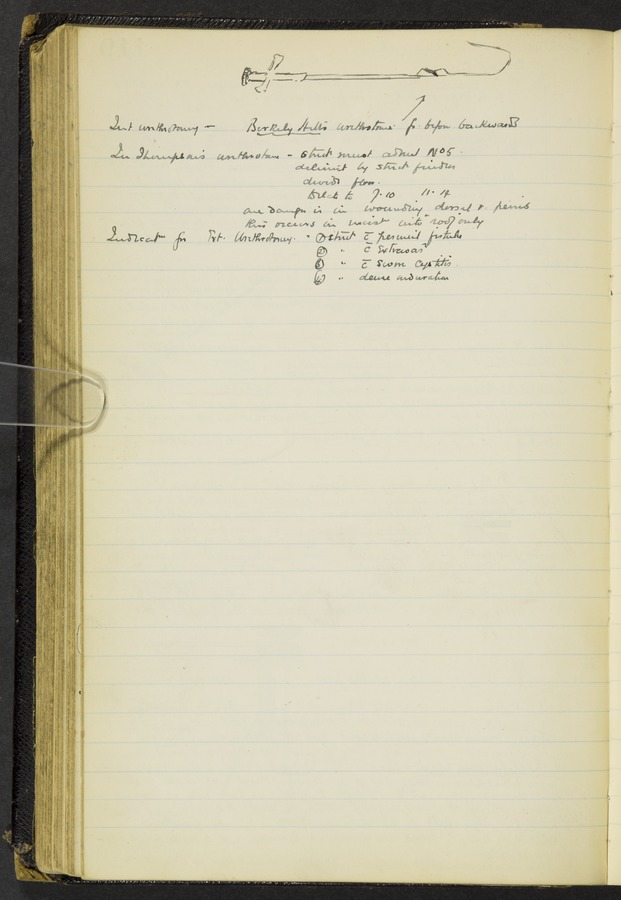 Int urethrotomy – Berkely Hill's urethrotome fr before backwards
In Thompson's urethrotome – Strict must admit No 5.
delimit by strict finder
divide floor.
Dilate to 9.10 11.12
one danger is in wounding dorsal v. penis
this occurs in incist into roof only
Indicat for Ext. Urethrotomy. ① Strict c̄ perineal fistula
② " c̄ Extravas
③ " c̄ Severe Cystitis
④ " dense induration